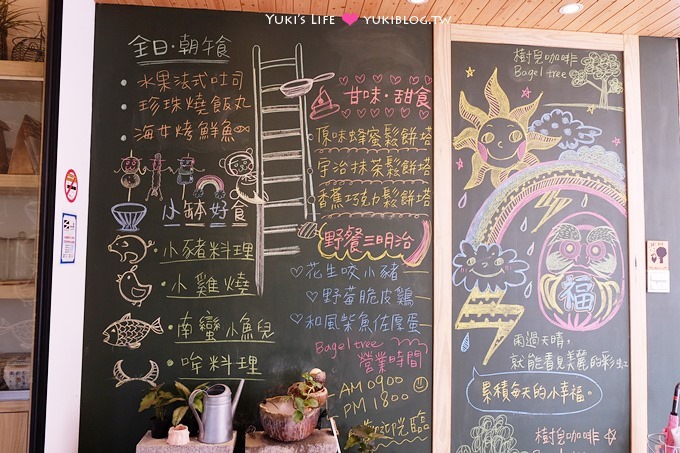 YUKI'S LIFE ♥ YUKIBLOG.TW
全日·朝午食
• 水果法式吐司
• 珍珠燒飯丸
• 海女烤鮮魚
小缽好食
• 小豬料理
• 小雞燒
• 南蠻小魚兒
• 哞料理
甘味·甜食
原味蜂蜜鬆餅塔
宇治抹茶鬆餅塔
香蕉巧克力鬆餅塔
野餐三明治
♡ 花生咬小豬
♡ 野莓脆皮雞
♡ 和風柴魚佐厚蛋
Bagel tree
營業時間
AM 0900
PM 1800
歡迎光臨
樹兒咖啡
Bagel tree
福
雨過天晴,
就能看見美麗的彩虹
累積每天的小幸福。
樹兒咖啡
Bagel tree